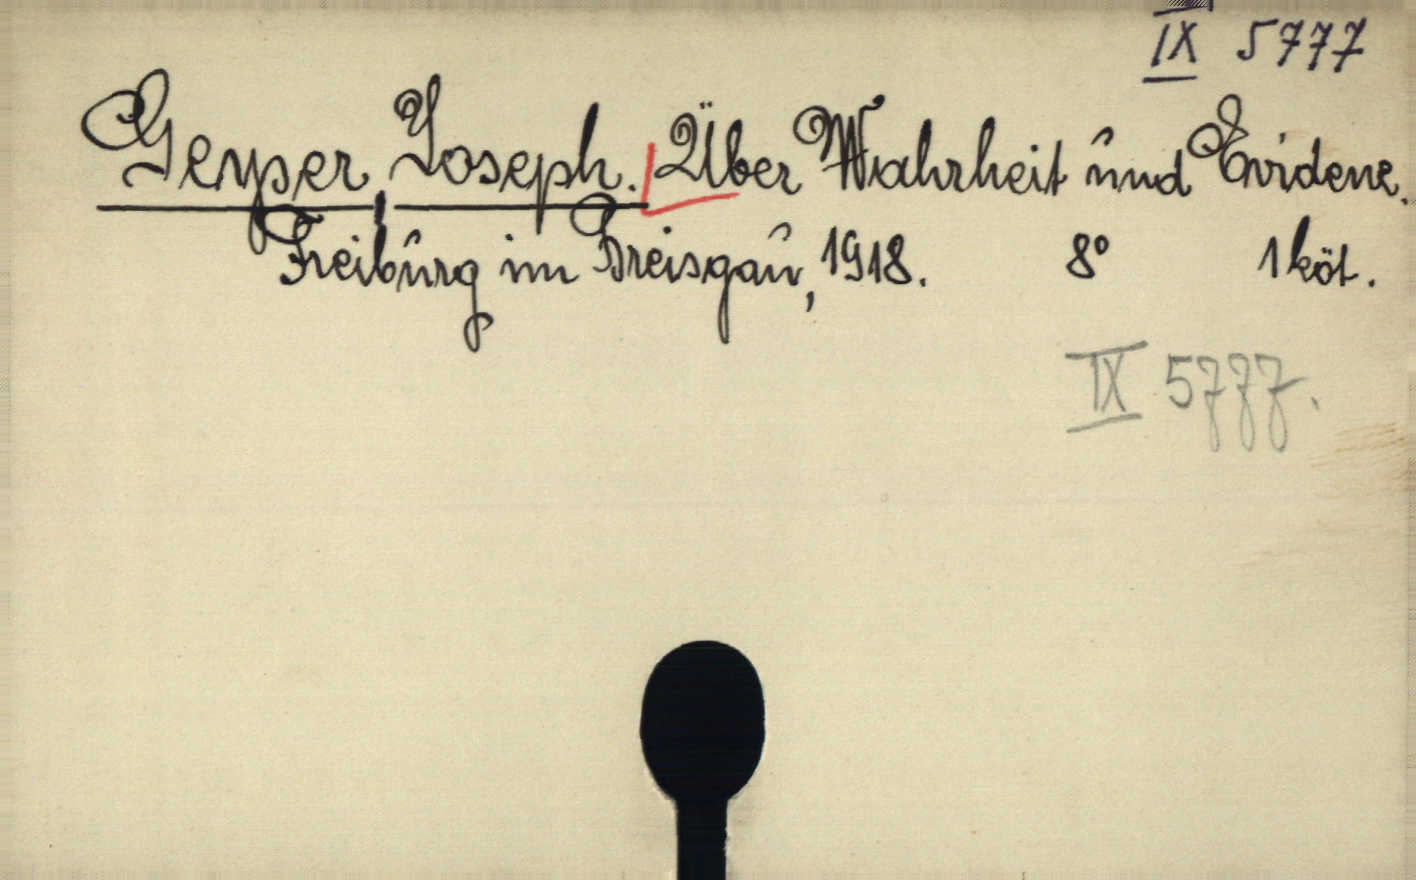 IX 5777
Geyser, Joseph. Über Wahrheit und Evidenz.
Freiburg im Breisgau, 1918. 8° 1 köt.
IX 5777.